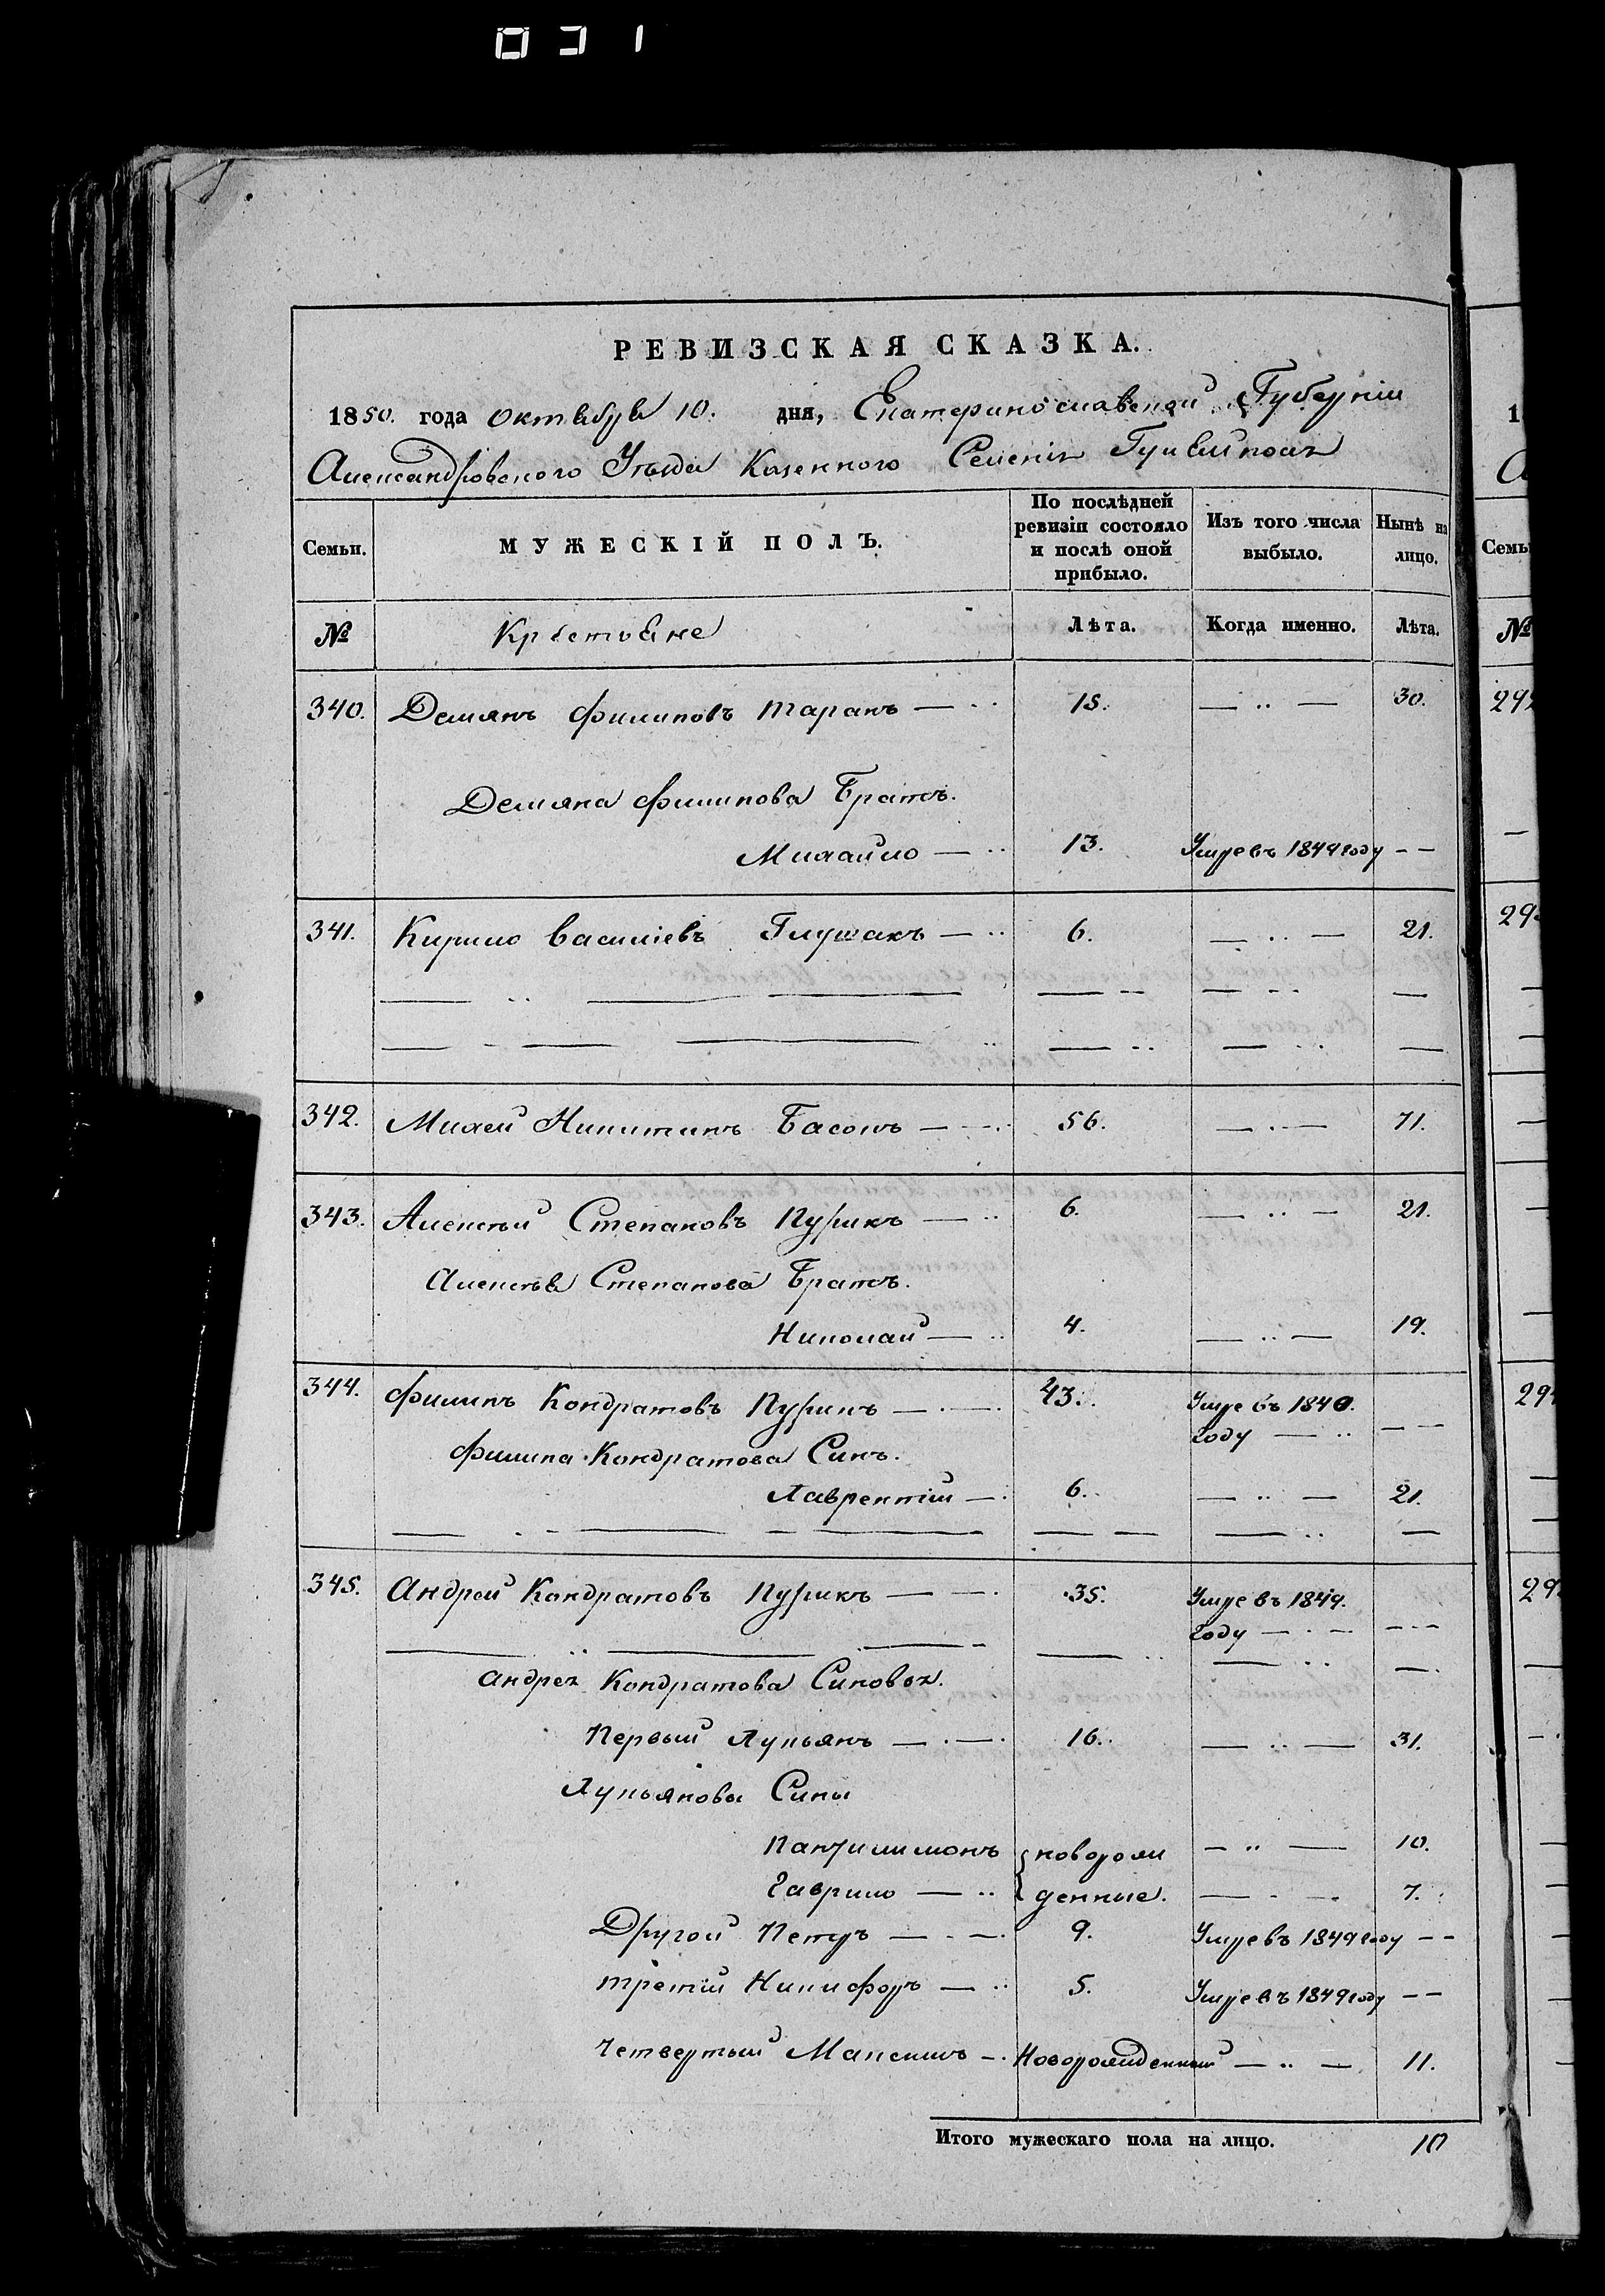 031
РЕВИЗСКАЯ СКАЗКА.
1850. года Октября 10. дня, Екатеринославской Губерніи
Александровского Уѣзда Казенного Селенія Гуляйполя
Семьи. МУЖЕСКІЙ ПОЛЪ. По послѣдней ревизіи состояло и послѣ оной прибыло. Изъ того числа выбыло. Нынѣ на лицо.
№ Крестьяне Лѣта. Когда именно. Лѣта.
340. Демянъ Филиповъ Таранъ 15. 30.
Демяна Филипова Братъ.
Михайло 13. Умре въ 1849 году
341. Кирило Василіевъ Глушакъ 6. 21.
342. Михей Никитинъ Басонъ 56. 71.
343. Алексѣй Степановъ Пурикъ 6. 21.
Алексѣя Степанова Братъ.
Николай 4. 19.
344. Филипъ Кондратовъ Пурикъ 43. Умре въ 1840.
году
Филипа Кондратова Синъ.
Лаврентій 6. 21.
345. Андрей Кондратовъ Пурикъ 35. Умре въ 1849.
году
Андрея Кондратова Синовья.
Первый Лукьянъ 16. 31.
Лукьянова Сины
Пантилимонъ новорож 10.
Гаврило денные. 7.
Другой Петръ 9. Умре въ 1849 году
Третій Никифоръ 5. Умре въ 1849 году
Четвертый Максимъ Новорожденный 11.
Итого мужескаго пола на лицо. 10
Семьи
№